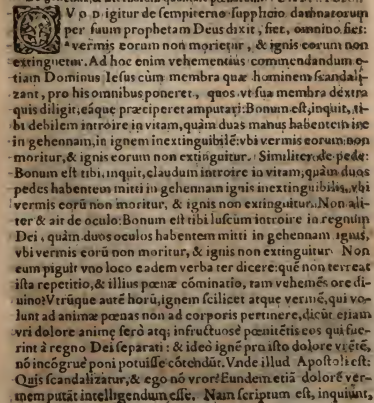 QVod igitur de sempiterno supplicio damnatorum
per suum prophetam Deus dixit, fiet, omnino fiet:
vermis eorum non morietur, & ignis eorum non
extinguetur. Ad hoc enim vehementius commendandum e-
tiam Dominus Iesus cùm membra quæ hominem scandali-
zant, pro his omnibus poneret, quos vt sua membra dextra
quis diligit, eáque præciperet amputari: Bonum est, inquit, ti-
bi debilem introire in vitam, quàm duas manus habentem ire
in gehennam, in ignem inextinguibilē: vbi vermis eorum non
moritur, & ignis eorum non extinguitur. Similiter de pede:
Bonum est tibi, inquit, claudum introire in vitam, quàm duos
pedes habentem mitti in gehennam ignis inextinguibilis, vbi
vermis eorū non moritur, & ignis non extinguitur. Non ali-
ter & ait de oculo: Bonum est tibi luscum introire in regnum
Dei, quàm duos oculos habentem mitti in gehennam ignis,
vbi vermis eorū non moritur, & ignis non extinguitur. Non
eum piguit vno loco eadem verba ter dicere: quē non terreat
ista repetitio, & illius pœnæ cōminatio, tam vehemēs ore di-
uino? Vtrūque autē horū, ignem scilicet atque vermē, qui vo-
lunt ad animæ pœnas non ad corporis pertinere, dicūt etiam
vri dolore animę serò atq; infructuosè pœnitētis eos qui fue-
rint à regno Dei separati: & ideò ignē pro isto dolore vrētē,
nō incōgruè poni potuisse cōtendūt. Vnde illud Apostoli est:
Quis scandalizatur, & ego nō vror? Eundem etiā dolorē ver-
mem putāt intelligendum esse. Nam scriptum est, inquiunt,